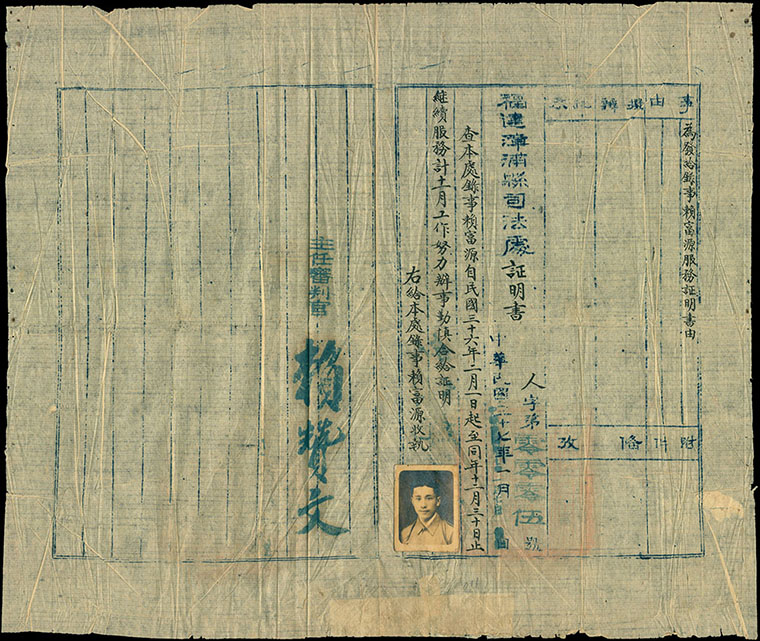 事由
擬辦
批示
為發給錄事賴富源服務証明書由
附件
備攷
福建漳浦縣司法處証明書
人字第零零零伍號
中華民國三十七年一月 日
查本處錄事賴富源自民國三十六年二月一日起至同年十二月三十日止
繼續服務計十一月工作努力辦事勤慎合給証明
右給本處錄事賴富源收執
主任審判官
賴贊文